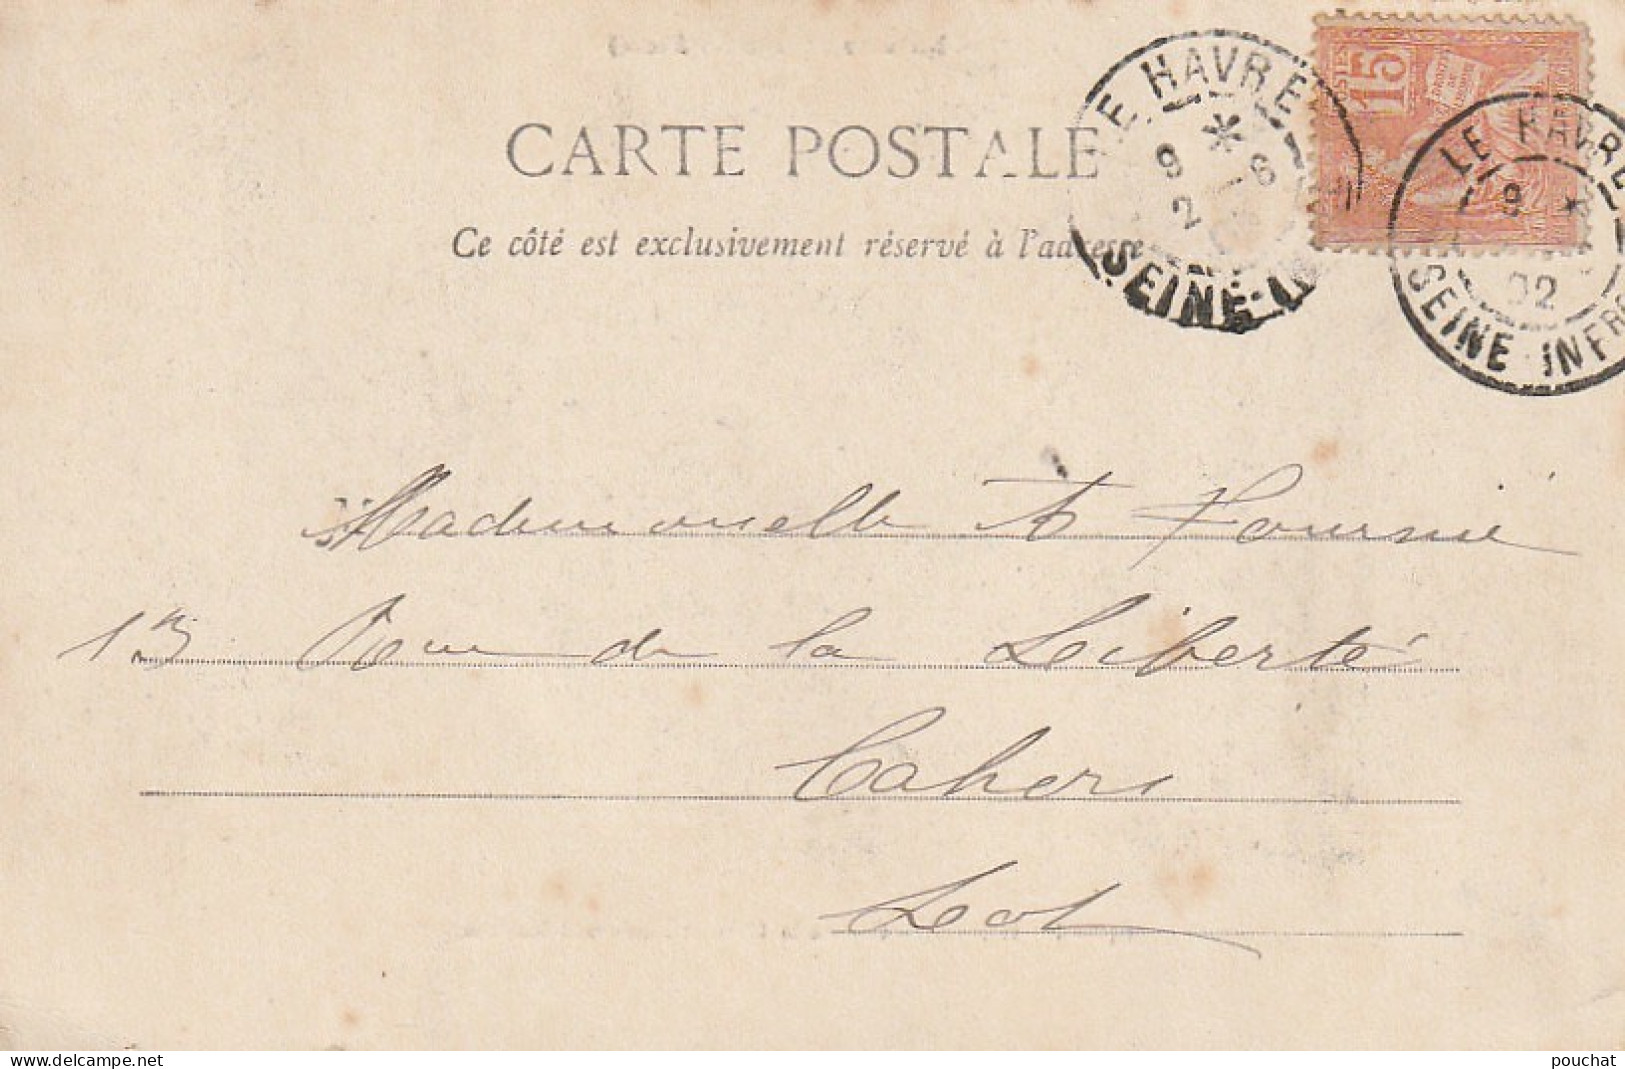 CARTE POSTALE
Ce côté est exclusivement réservé à l'adresse
15
LE HAVRE
8 * 6
2
SEINE-I
LE HAVRE
9 *
02
SEINE INFRE
Mademoiselle A Fournié
13 Rue de la Liberté
Cahors
Lot
www.delcampe.net
pouchat